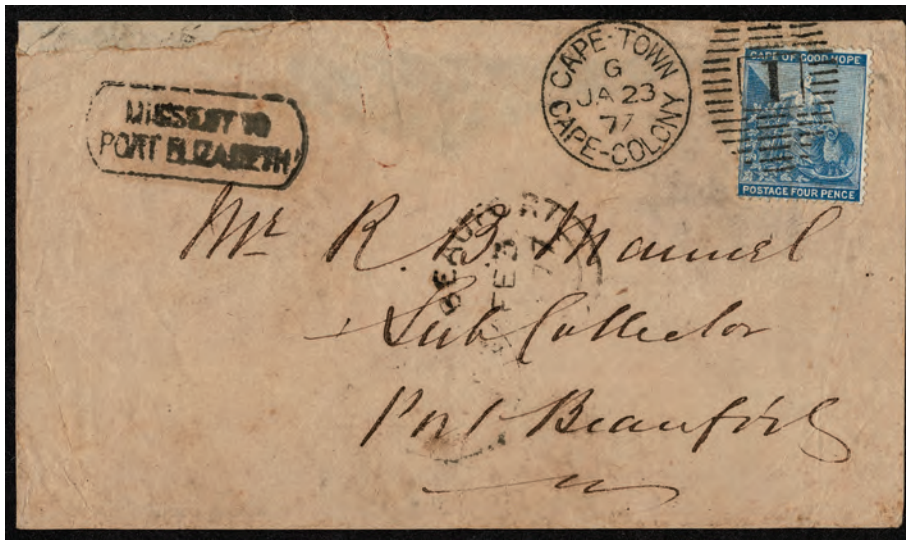 MISSENT TO
PORT ELIZABETH
CAPE-TOWN
G
JA 23
77
CAPE-COLONY
1
CAPE OF GOOD HOPE
POSTAGE FOUR PENCE
BEAUFORT
FE 3
77
Mr R. B. Manuel
Sub Collector
Port Beaufort